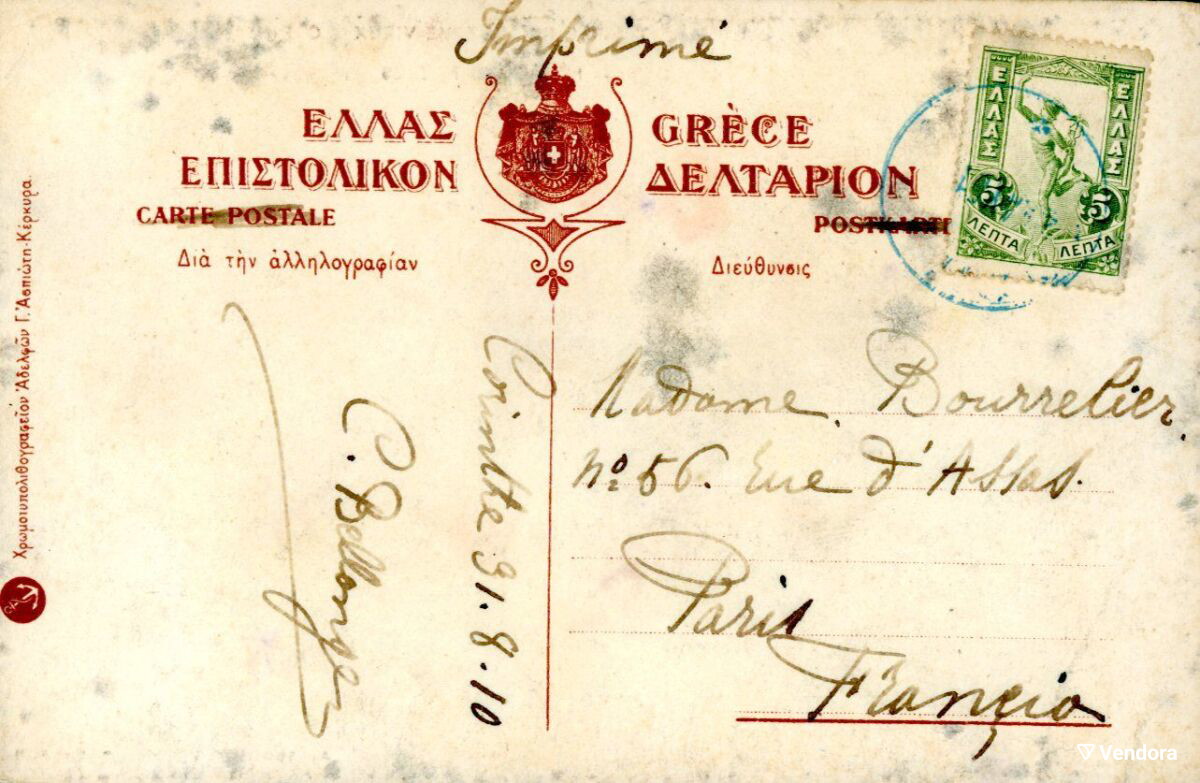 Imprimé
ΕΛΛΑΣ GRÈCE
ΕΠΙΣΤΟΛΙΚΟΝ ΔΕΛΤΑΡΙΟΝ
CARTE POSTALE POSTKARTE
Διὰ τὴν ἀλληλογραφίαν Διεύθυνσις
ΕΛΛΑΣ ΕΛΛΑΣ
5 5
ΛΕΠΤΑ ΛΕΠΤΑ
Χρωμοτυπολιθογραφεῖον Ἀδελφῶν Γ. Ἀσπιώτη-Κέρκυρα.
C.
Corinthe 31.8.10
Madame Bourrelier
No 56. Rue d'Assas.
Paris
Francia
Vendora